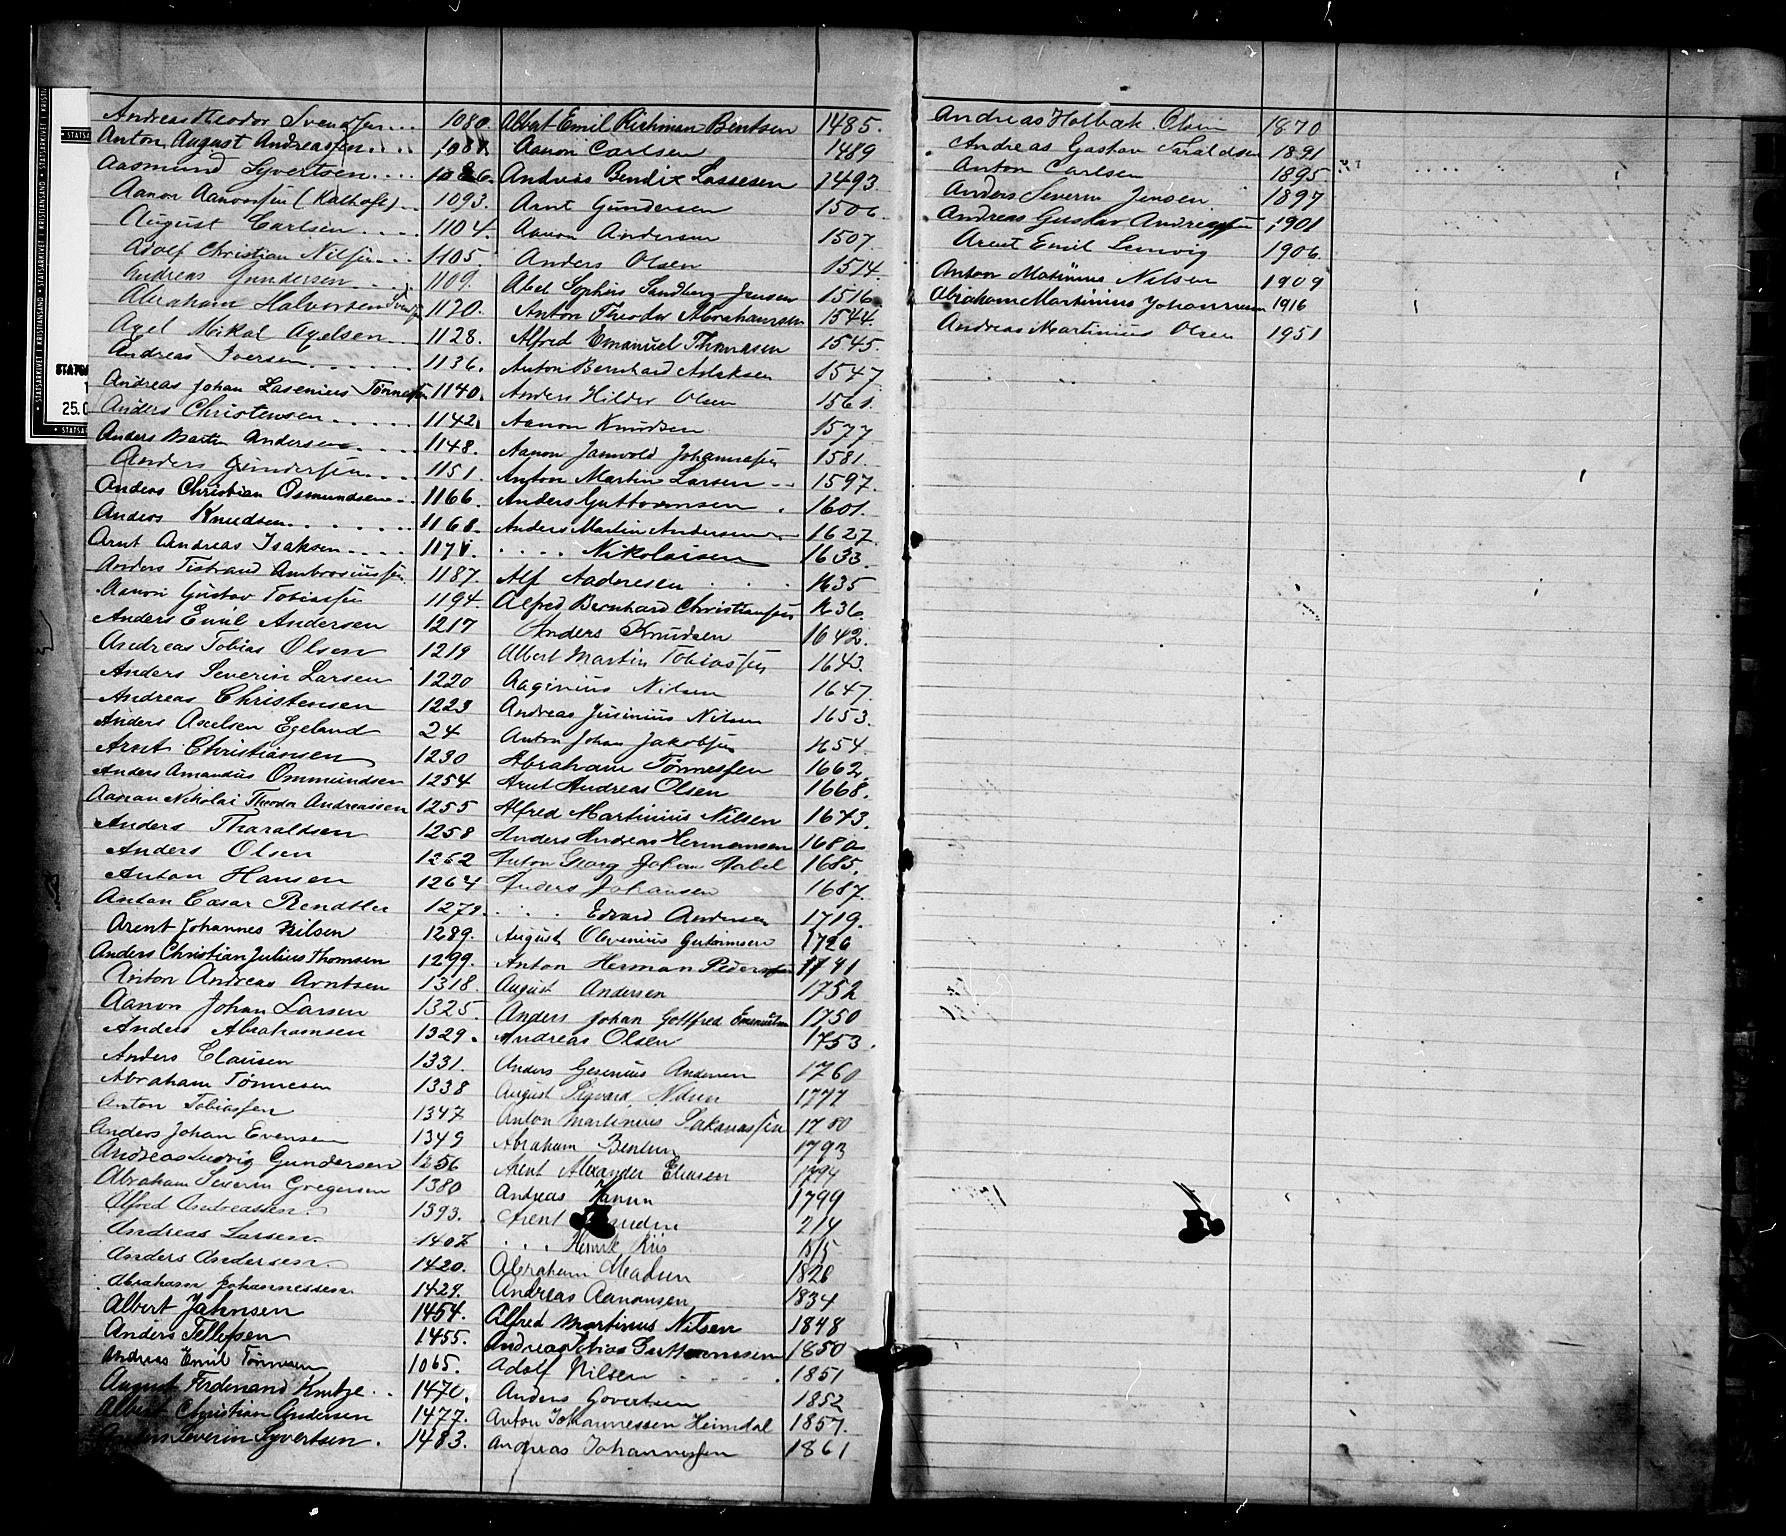 Andreas Theodor Svendsen ... 1080.
Anton August Andreassen. . . . 1081.
Aasmund Syvertsen. . . . 1086.
Aanon Aanonsen (Kalhofs) .. 1093.
August Carlsen . . . . 1104.
Adolf Christian Nilsen . . 1105
Andreas Gundersen . . . 1109.
Abraham Halvorsen 1120.
Axel Mikal Axelsen . . 1128.
Andreas Iversen . . . . . . 1136.
Andreas Johan Lasenius Tønnesen 1140.
Anders Christensen . . . . . 1142
Anders Martin Andersen . . . . 1148.
Anders Gundersen . . . . 1151.
Andeas Christian Osmundsen . . 1166.
Anders Knudsen. . . . . . . 1168.
Arnt Andreas Isaksen . . . .
Anders Tistrand Ambrosiussen 1187.
Aanon Gustav Tobiassen 1194.
Anders Emil Andersen 1217
Andreas Tobias Olsen 1219
Anders Severin Larsen 1220
Andreas Christensen 1223
Anders Axelsen Egeland 24
Arnt Christiansen 1230
Anders Amandus Ommundsen 1254
Aanan Nikolai Theodor Andreassen 1255
Anders Tharaldsen 1258
Anders Olsen 1262
Anton Hansen 1264
Anton Cæsar Rendtler
Arent Johannes Nilsen 1289.
Anders Christian Julius Thomsen 1299.
Anton Andreas Arntsen 1318.
Aanon Johan Larsen 1325.
Anders Abrahamsen 1329.
Anders Clausen 1331.
Abraham Tønnesen 1338
Anton Tobiassen 1347
Anders Johan Evensen 1349
Andreas Ludvig Gundersen 1256
Abraham Severin Gregersen 1380
Alfred Andreassen. 1393.
Andreas Larsen. 1407
Anders Andersen. 1420.
Abraham Johannessen 1429.
Albert Jahnsen 1454.
Anders Tellefsen 1455.
Andreas Emil Tønnesen 1065.
August Ferdinand . . 1470.
Albert Christian Andersen 1477.
Anders Severin Syvertsen. 1483.
Albert Emil Richman Bentsen 1485.
Aanon Carlsen 1489
Andreas Bendix Lassesen 1493
Arnt Gundersen 1506
Aanon Andersen 1507.
Anders Olsen 1514.
Abel Sophus Sandberg Jensen 1516
Anton Theodor Abrahamsen 1544.
Alfred Emanuel Thomasen 1545.
Anton Bernhard Aslaksen 1547
Anders Hilder Olsen 1561.
Aanon Knudsen 1577
Aanon Jamvold Johannessen 1581.
Anton Martin Larsen . . 1597.
Anders Guttormsen . 1601.
Anders Martin Andersen 1627.
. . . . Nikolaisen 1633.
Alf Aadnesen . . . 1635
Alfred Bernhard Christiansen 1636.
Anders Knudsen 1642.
Albert Martin Tobiassen 1643.
Aaginius Nilsen 1647.
Andreas Jusinius Nilsen 1653.
Anton Johan Jakobsen 1654.
Abraham Tønnessen 1662.
Arnt Andreas Olsen 1668.
Alfred Martinius Nilsen 1673.
Anders Andreas Hermansen 1680
Anton Georg Johan Aabel 1685.
Anders Johansen 1687.
. . . Edvard Andersen 1719.
August Olevenius Gutormsen 1726
Anton Herman Pedersen 1741
August Andersen 1752
Anders Johan Gottfred Emanuelsen 1750
Andreas Olsen 1753.
Anders Gesenius Andersen 1760
August Sigvard Nilsen 1777
Anton Martinius Sakariassen 1780
Abraham Bentsen 1793
Arent Alexander Eliasen 1794
Andreas Hansen 1799
Arent 214
. . . Henrik Riis 1815
Abraham Madsen 1826
Andreas Aanonsen 1834
Alfred Martinus Nilsen 1848
Andreas Tobias Guttormsen 1850
Adolf Nilsen . . . . 1851
Anders Govertsen 1852
Anton Johannessen Heimdal 1857.
Andreas Johannessen 1861
Andreas Holbak Olsen 1870
Andreas Gustav Taraldsen 1891
Anton Carlsen 1895
Anders Severin Jensen 1897
Andreas Gustav Andreassen 1901
Arent Emil Lunvig 1906
Anton Matinius Nilsen 1909
Abraham Martinius Johannesen 1916
Andreas Martinius Olsen 1951
STATSARKIVET I KRISTIANSAND
25.